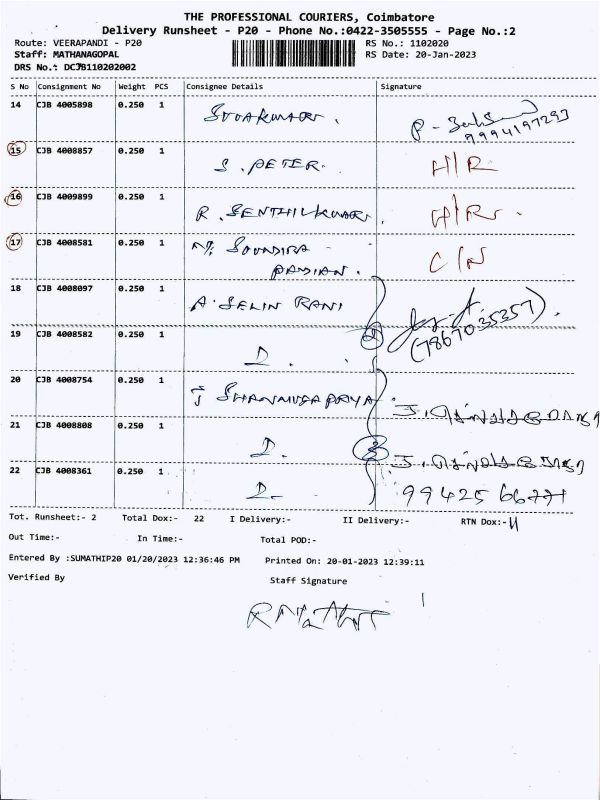 THE PROFESSIONAL COURIERS, Coimbatore
Delivery Runsheet - P20 - Phone No.:0422-3505555 - Page No.:2
Route: VEERAPANDI - P20 RS No.: 1102020
Staff: MATHANAGOPAL RS Date: 20-Jan-2023
DRS No.: DCJB110202002
S No Consignment No Weight PCS Consignee Details Signature
14 CJB 4005898 0.250 1 9994197293
15 CJB 4008857 0.250 1 S. PETER. H/R
16 CJB 4009899 0.250 1 R. SENTHILKUMAR.
17 CJB 4008581 0.250 1 M. SOUNDIRA C/N
PANDIAN.
18 CJB 4008097 0.250 1 A. SELIN RANI
19 CJB 4008582 0.250 1 2 (7867035357).
20 CJB 4008754 0.250 1 J SHANMUGAPRIYA
21 CJB 4008808 0.250 1 3
22 CJB 4008361 0.250 1
Tot. Runsheet:- 2 Total Dox:- 22 I Delivery:- II Delivery:- RTN Dox:-
Out Time:- In Time:- Total POD:-
Entered By :SUMATHIP20 01/20/2023 12:36:46 PM Printed On: 20-01-2023 12:39:11
Verified By Staff Signature